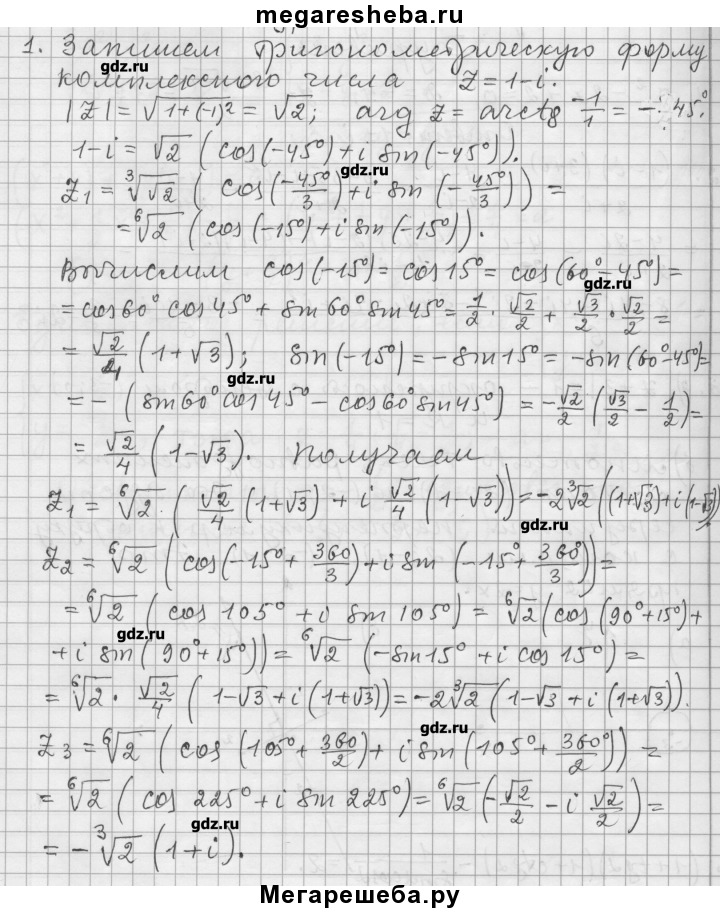 megaresheba.ru
1. Запишем тригонометрическую форму
комплексного числа Z = 1-i.
gdz.ru
|Z| = √(1+(-1)²) = √2; arg Z = arctg -1/1 = -45°.
1-i = √2 (cos(-45°)+i sin(-45°)).
gdz.ru
Z₁ = ∛√2 (cos(-45°/3)+i sin(-45°/3)) =
= ⁶√2 (cos(-15°)+i sin(-15°)).
gdz.ru
Вычислим cos(-15°) = cos 15° = cos(60°-45°) =
gdz.ru
= cos 60° cos 45° + sin 60° sin 45° = 1/2 · √2/2 + √3/2 · √2/2 =
= √2/4 (1+√3); sin(-15°) = -sin 15° = -sin(60°-45°) =
gdz.ru
= -(sin 60° cos 45° - cos 60° sin 45°) = -√2/2 (√3/2 - 1/2) =
= √2/4 (1-√3). Получаем
gdz.ru
Z₁ = ⁶√2 · (√2/4 (1+√3) + i √2/4 (1-√3)) = -2∛2 ((1+√3)+i(1-√3))
gdz.ru
Z₂ = ⁶√2 (cos(-15°+360/3)+i sin(-15°+360°/3)) =
gdz.ru
= ⁶√2 (cos 105° + i sin 105°) = ⁶√2 (cos(90°+15°)+
gdz.ru
+ i sin(90°+15°)) = ⁶√2 (-sin 15° + i cos 15°) =
= ⁶√2 · √2/4 (1-√3+i(1+√3)) = -2∛2 (1-√3+i(1+√3)).
gdz.ru
Z₃ = ⁶√2 (cos(105°+360/2)+ i sin(105°+360°/2)) =
gdz.ru
= ⁶√2 (cos 225°+i sin 225°) = ⁶√2 (-√2/2 - i √2/2) =
gdz.ru
= -∛2 (1+i).
Мегарешеба.ру